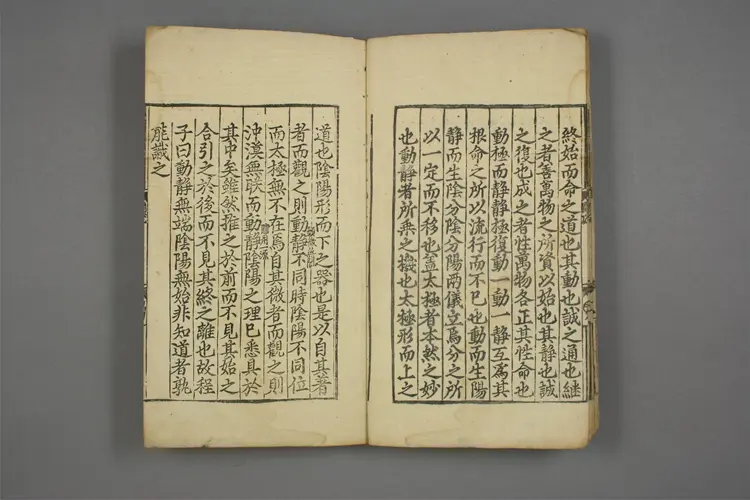 終始而命之道也其動也誠之通也繼
之者善萬物之所資以始也其靜也誠
之復也成之者性萬物各正其性命也
動極而靜靜極復動一動一靜互爲其
根命之所以流行而不已也動而生陽
靜而生陰分陰分陽兩儀立焉分之所
以一定而不移也蓋太極者本然之妙
也動靜者所乘之機也太極形而上之
道也陰陽形而下之器也是以自其著
者而觀之則動靜不同時陰陽不同位
而太極無不在焉自其微者而觀之則
沖漠無朕而動靜陰陽之理已悉具於
其中矣雖然推之於前而不見其始之
合引之於後而不見其終之離也故程
子曰動靜無端陰陽無始非知道者孰
能識之